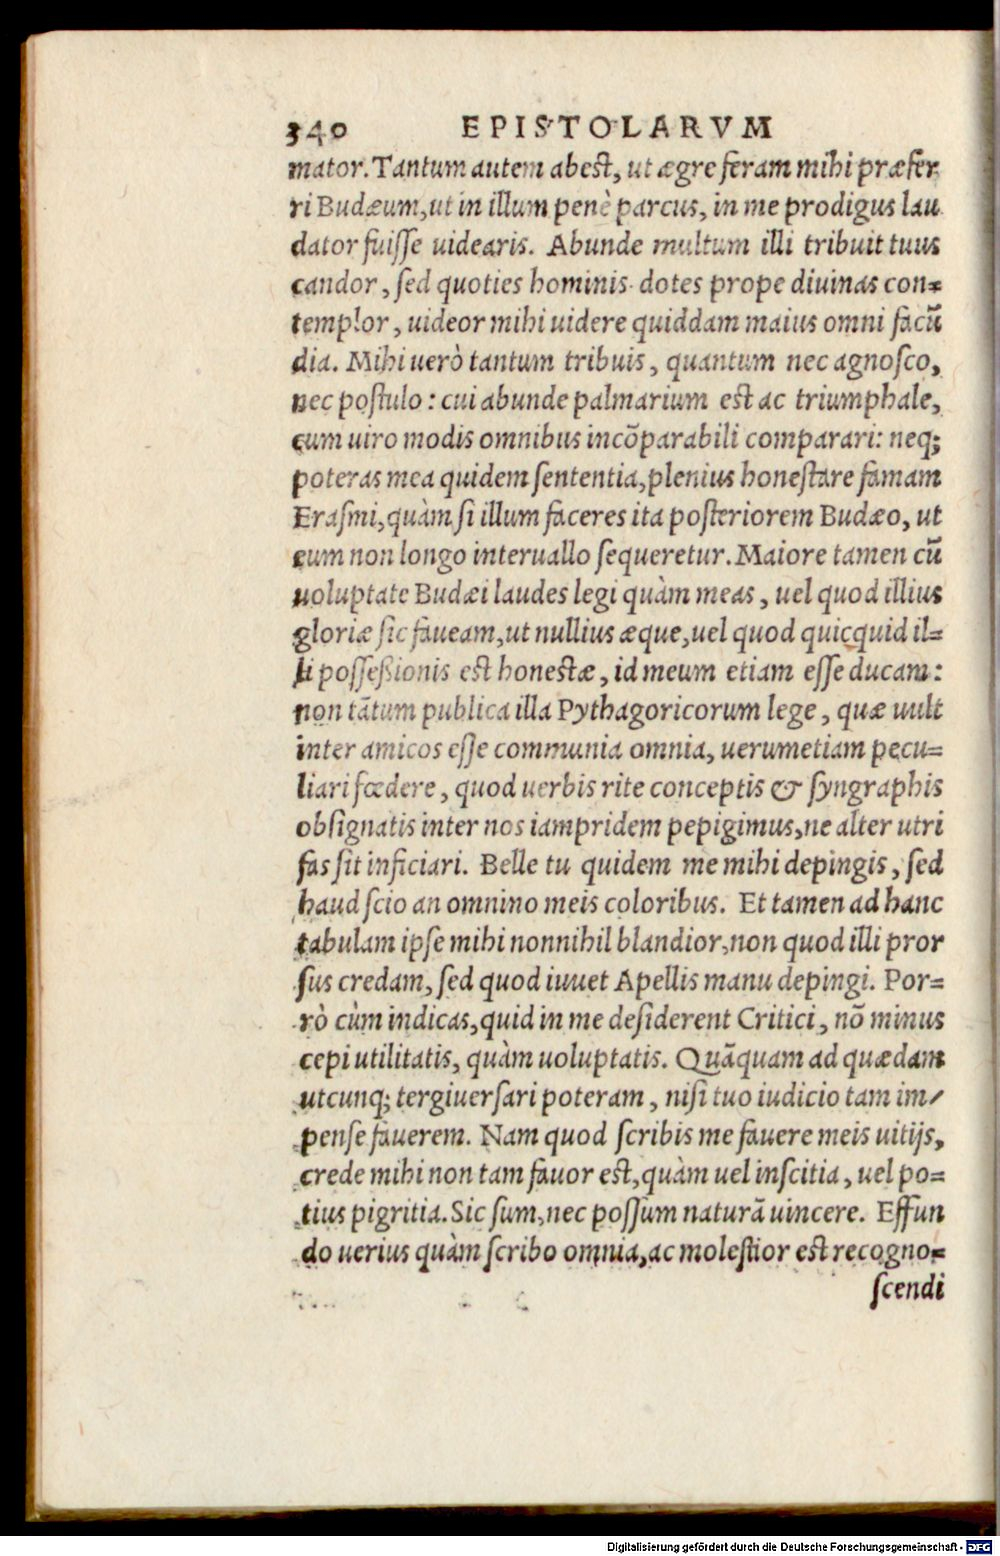 340 EPISTOLARVM
mator. Tantum autem abest, ut ægre feram mihi præfer
ri Budæum, ut in illum penè parcus, in me prodigus lau
dator fuisse uidearis. Abunde multum illi tribuit tuus
candor, sed quoties hominis dotes prope diuinas con=
templor, uideor mihi uidere quiddam maius omni facũ
dia. Mihi uerò tantum tribuis, quantum nec agnosco,
nec postulo: cui abunde palmarium est ac triumphale,
cum uiro modis omnibus incõparabili comparari: neq;
poteras mea quidem sententia, plenius honestare famam
Erasmi, quàm si illum faceres ita posteriorem Budæo, ut
eum non longo interuallo sequeretur. Maiore tamen cũ
uoluptate Budæi laudes legi quàm meas, uel quod illius
gloriæ sic faueam, ut nullius æque, uel quod quicquid il=
li posseßionis est honestæ, id meum etiam esse ducam:
non tãtum publica illa Pythagoricorum lege, quæ uult
inter amicos esse communia omnia, uerumetiam pecu=
liari fœdere, quod uerbis rite conceptis & syngraphis
obsignatis inter nos iampridem pepigimus, ne alter utri
fas sit inficiari. Belle tu quidem me mihi depingis, sed
haud scio an omnino meis coloribus. Et tamen ad hanc
tabulam ipse mihi nonnihil blandior, non quod illi pror
sus credam, sed quod iuuet Apellis manu depingi. Por=
rò cùm indicas, quid in me desiderent Critici, nõ minus
cepi utilitatis, quàm uoluptatis. Quãquam ad quædam
utcunq; tergiuersari poteram, nisi tuo iudicio tam im/
pense fauerem. Nam quod scribis me fauere meis uitijs,
crede mihi non tam fauor est, quàm uel inscitia, uel po=
tius pigritia. Sic sum, nec possum naturã uincere. Effun
do uerius quàm scribo omnia, ac molestior est recogno=
scendi
Digitalisierung gefördert durch die Deutsche Forschungsgemeinschaft - DFG